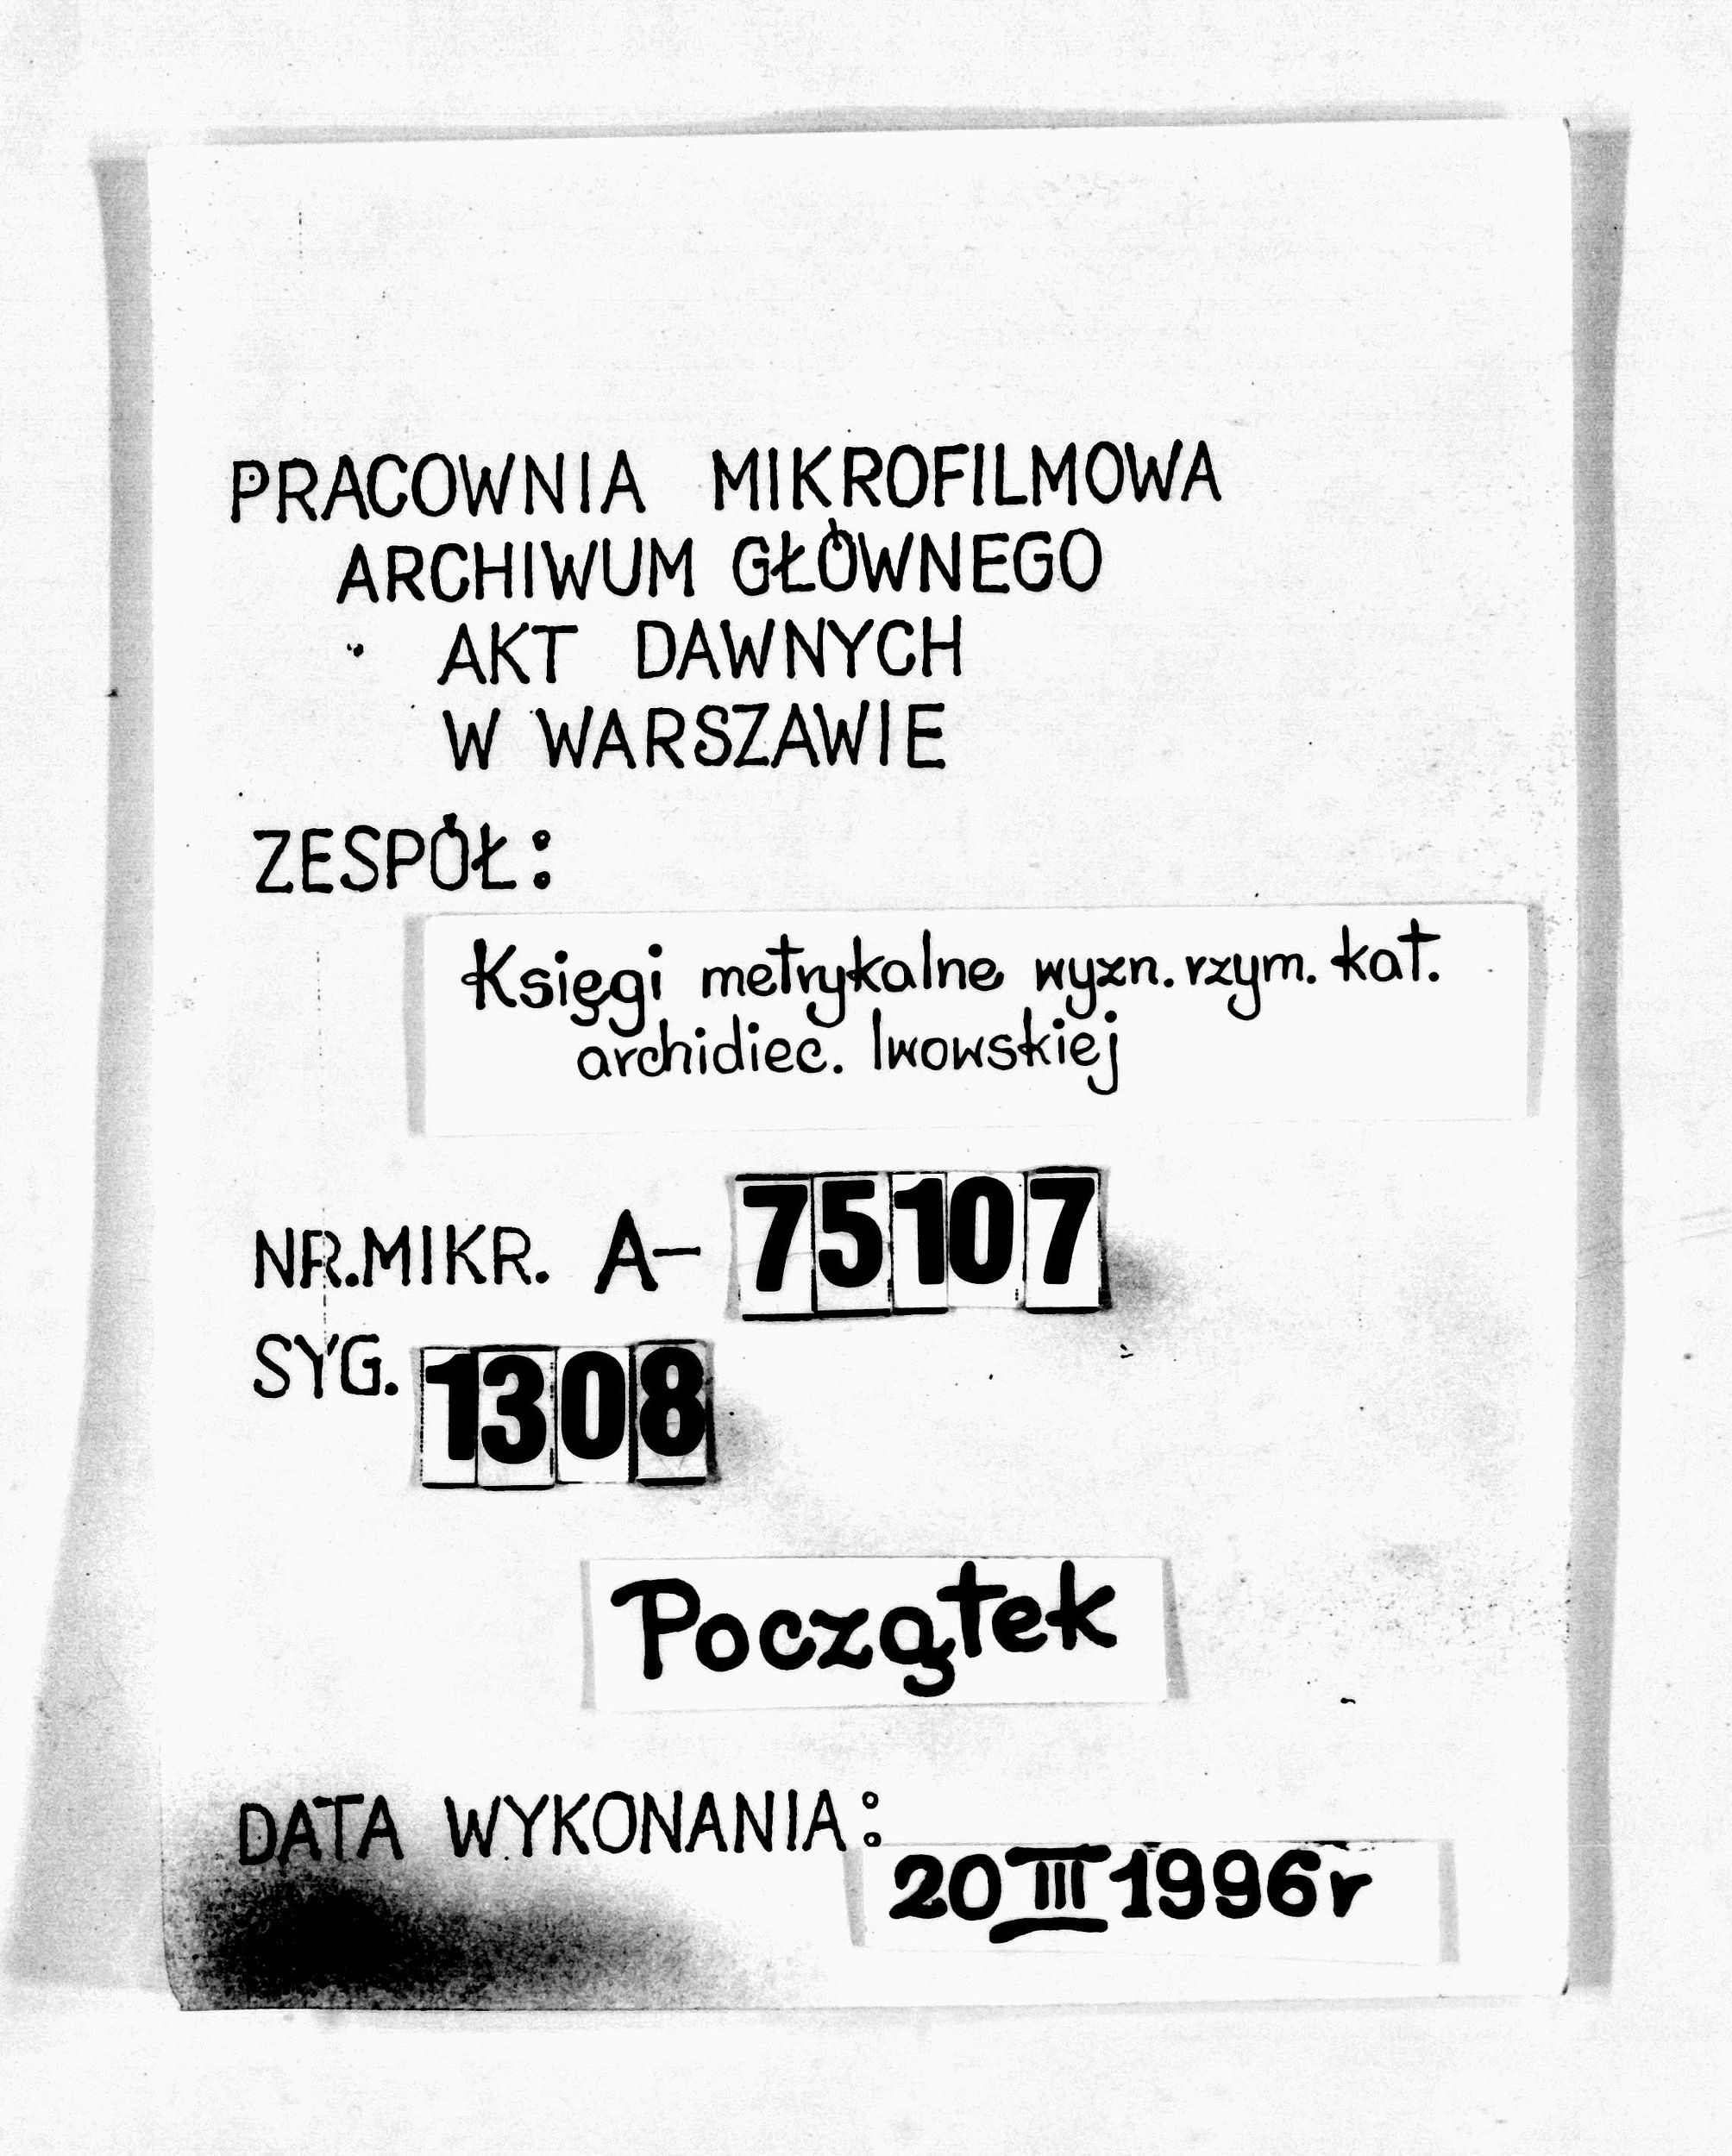 PRACOWNIA MIKROFILMOWA
ARCHIWUM GŁÓWNEGO
AKT DAWNYCH
W WARSZAWIE
ZESPÓŁ:
Księgi metrykalne wyzn. rzym. kat.
archidiec. lwowskiej
NR.MIKR. A- 75107
SYG. 1308
Początek
DATA WYKONANIA:
20 III 1996r